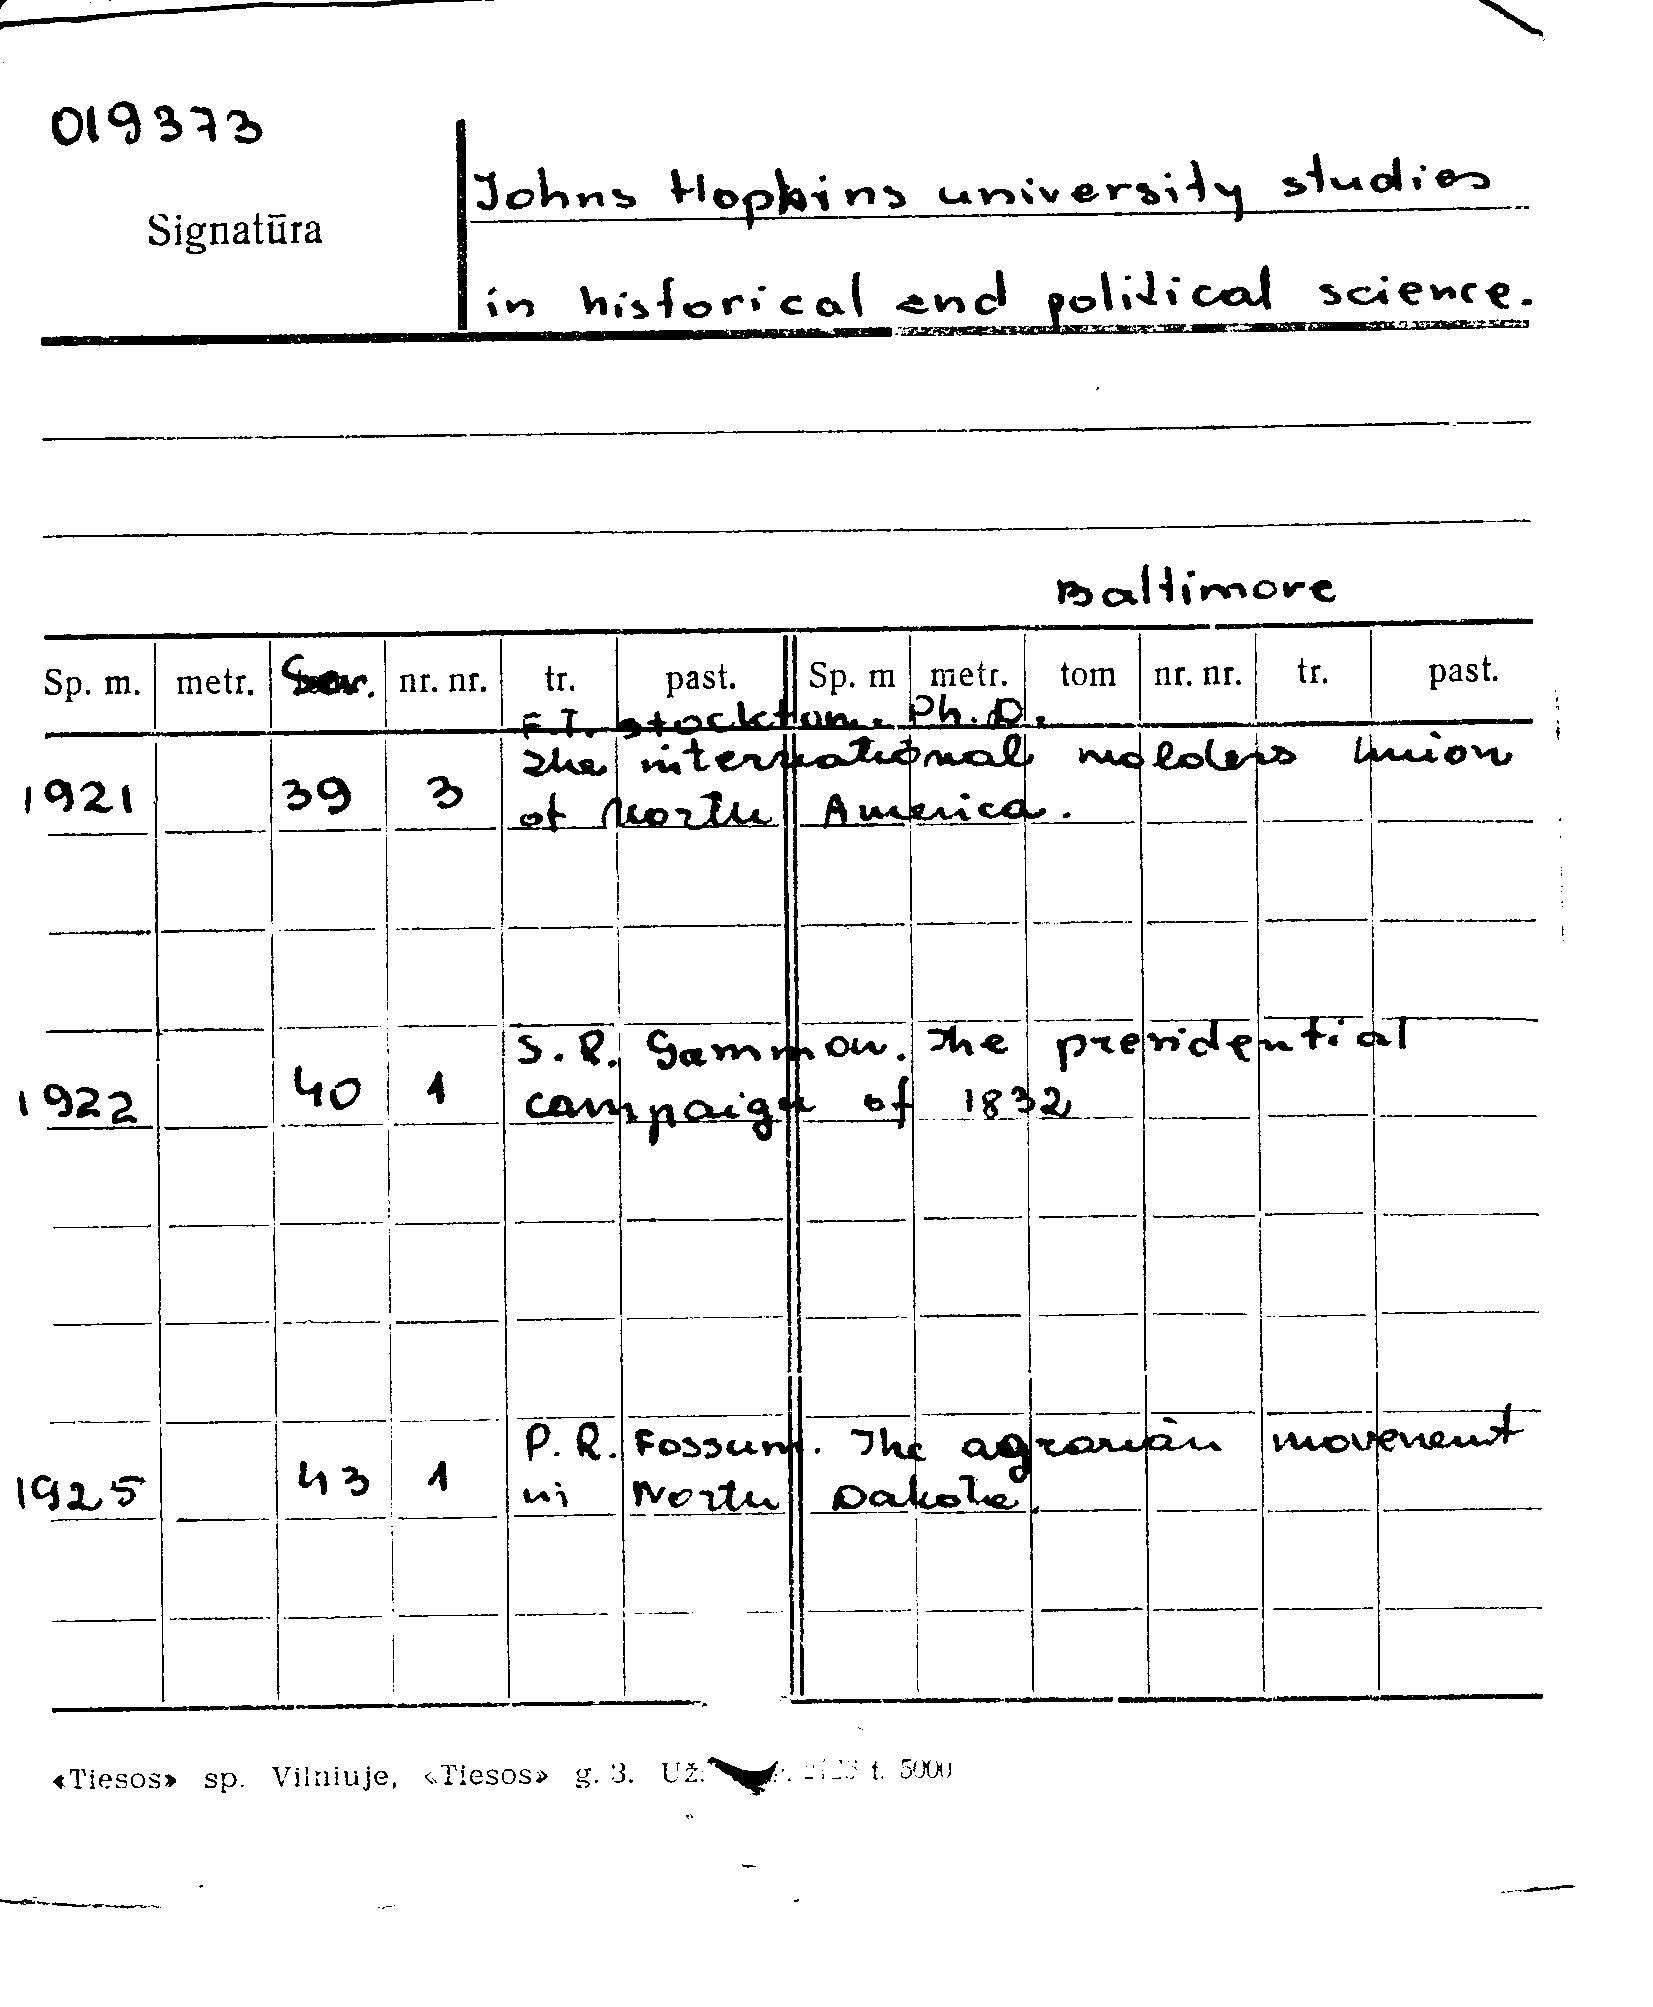 019373
Signatūra
Johns Hopkins university studies
in historical and political science.
Baltimore
Sp. m. metr. Ser. nr. nr. tr. past. Sp. m metr. tom nr. nr. tr. past.
F.T. Stockton. Ph.D.
The international molders union
1921 39 3
of North America.
S.R. Gammon. The presidential
1922 40 1 campaign of 1832
P.R. Fossum. The agrarian movement
1925 43 1 in North Dakota.
«Tiesos» sp. Vilniuje, «Tiesos» g. 3. Už. t. 5000